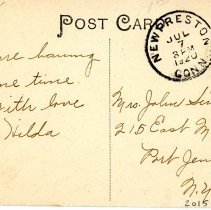 POST CARD
NEW PRESTON
JUL
7
3 PM
1920
CONN.
are having
ne time.
with love
Hilda
Mrs. John
215 East M
Port Jer
N.Y.
2015